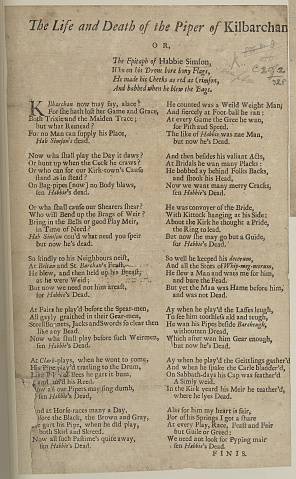 The Life and Death of the Piper of Kilbarchan
OR,
The Epitaph of Habbie Simson,
Who on his Drone bore bony Flags,
He made his Cheeks as red as Crimson,
And bobbed when he blew the Bags.
Kilbarchan now may say, alace!
For she hath lost her Game and Grace,
Both Trixie and the Maiden Trace;
but what Remead?
For no Man can supply his Place,
Hab Simson's dead.
Now who shall play the Day it daws?
Or hunt up when the Cock he craws?
Or who can for our Kirk-town's Cause
stand us in stead?
On Bag-pipes (now) no Body blaws,
sen Habbie's dead.
Or who shall cause our Shearers shear?
Who will Bend up the Brags of Weir?
Bring in the Bells or good Play Meir,
in Time of Need?
Hab Simson could what need you speir
but now he's dead.
So kindly to his Neighbours neist,
At Beltan and St. Barchan's Feast,
He blew, and then held up his Breast;
as he were Weid;
But now we need not him areist,
for Habbie's Dead.
At Fairs he play'd before the Spear-men,
All gayly graithed in their Gear-men,
Steel Bonnets, Jacks and Swords so clear then
like any Bead.
Now who shall play before such Weirmen,
sen Habbie's Dead.
At Clark-plays, when he went to come,
His Pipe play'd trailing to the Drum,
Like Bees he gart it bum,
and his Reed.
Now all our Pipers may sing dumb,
sen Habbie's Dead,
And at Horse-races many a Day,
Before the Black, the Brown and Gray,
He gart his Pipe, when he did play,
both Skirl and Skreed.
Now all such Pastime's quite away,
sen Habbie's Dead.
He counted was a Weild Weight Man,
And fiercly at Foot-ball he ran:
At every Game the Gree he wan,
for Pith and Speed.
The like of Habbie was not Man,
but now he's Dead.
And then besides his valiant Acts,
At Bridals he wan many Placks:
He bobbed ay behind Folks Backs,
and shook his Head,
Now we want many merry Cracks,
sen Habbie's Dead.
He was convoyer of the Bride,
With Kittock hanging at his Side:
About the Kirk he thought a Pride,
the Ring to lead.
But now she may go but a Guide,
for Habbie's Dead.
So well he keeped his decorum,
And all the Stots of Whip-meg-morum,
He slew a Man and waes me for him,
and bure the Fead.
But yet the Man was Hame before him,
and was not Dead.
Ay when he play'd the Lasses leugh,
To see him toothless ald and teugh,
He wan his Pipes beside Barcheugh,
withoutten Dread,
Which after wan him Gear enough,
but now he's Dead.
Ay when he play'd the Geitslings gather'd
And when he spake the Carle bladder'd,
On Sabbath-days his Cap was feather'd
A Simly weid.
In the Kirk yeard his Meir he teather'd,
where he lyes Dead.
Alas for him my heart is sair,
For of his Springs I got a skair
At every Play, Race, Feast and Fair
but Guile or Greed:
We need not look for Pyping mair
sen Habbie's Dead.
FINIS.